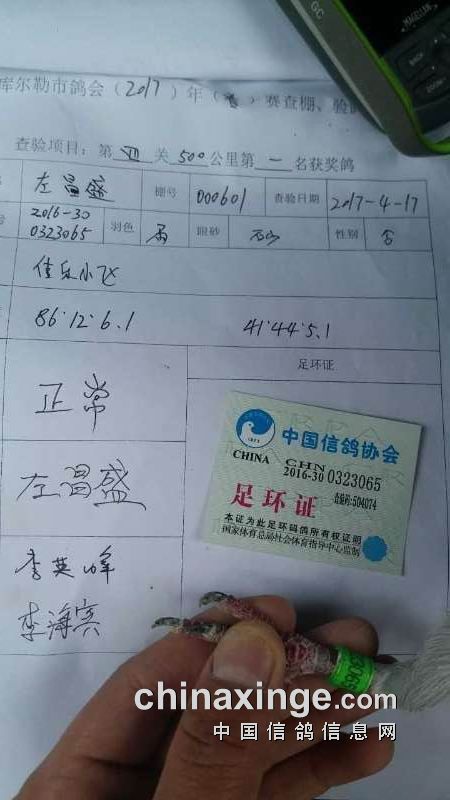 GC
MAGELLAN
ZOOM
库尔勒市鸽会(2017)年( )赛查棚、验
查验项目：第 Ⅶ 关 500公里第 一 名获奖鸽
左昌盛 棚号 000601 查验日期 2017-4-17
号 2016-30 0323065 羽色 雨 眼砂 性别
佳乐小飞
86.12.6.1 41.44.5.1
正常 足环证
左昌盛
李英峰
李海宾
中国信鸽协会
CHINA CHN
2016-30 0323065
足环证
504074
本证为此足环码鸽所有权证明
国家体育总局社会体育指导中心监制
chinaxinge.com
中国信鸽信息网